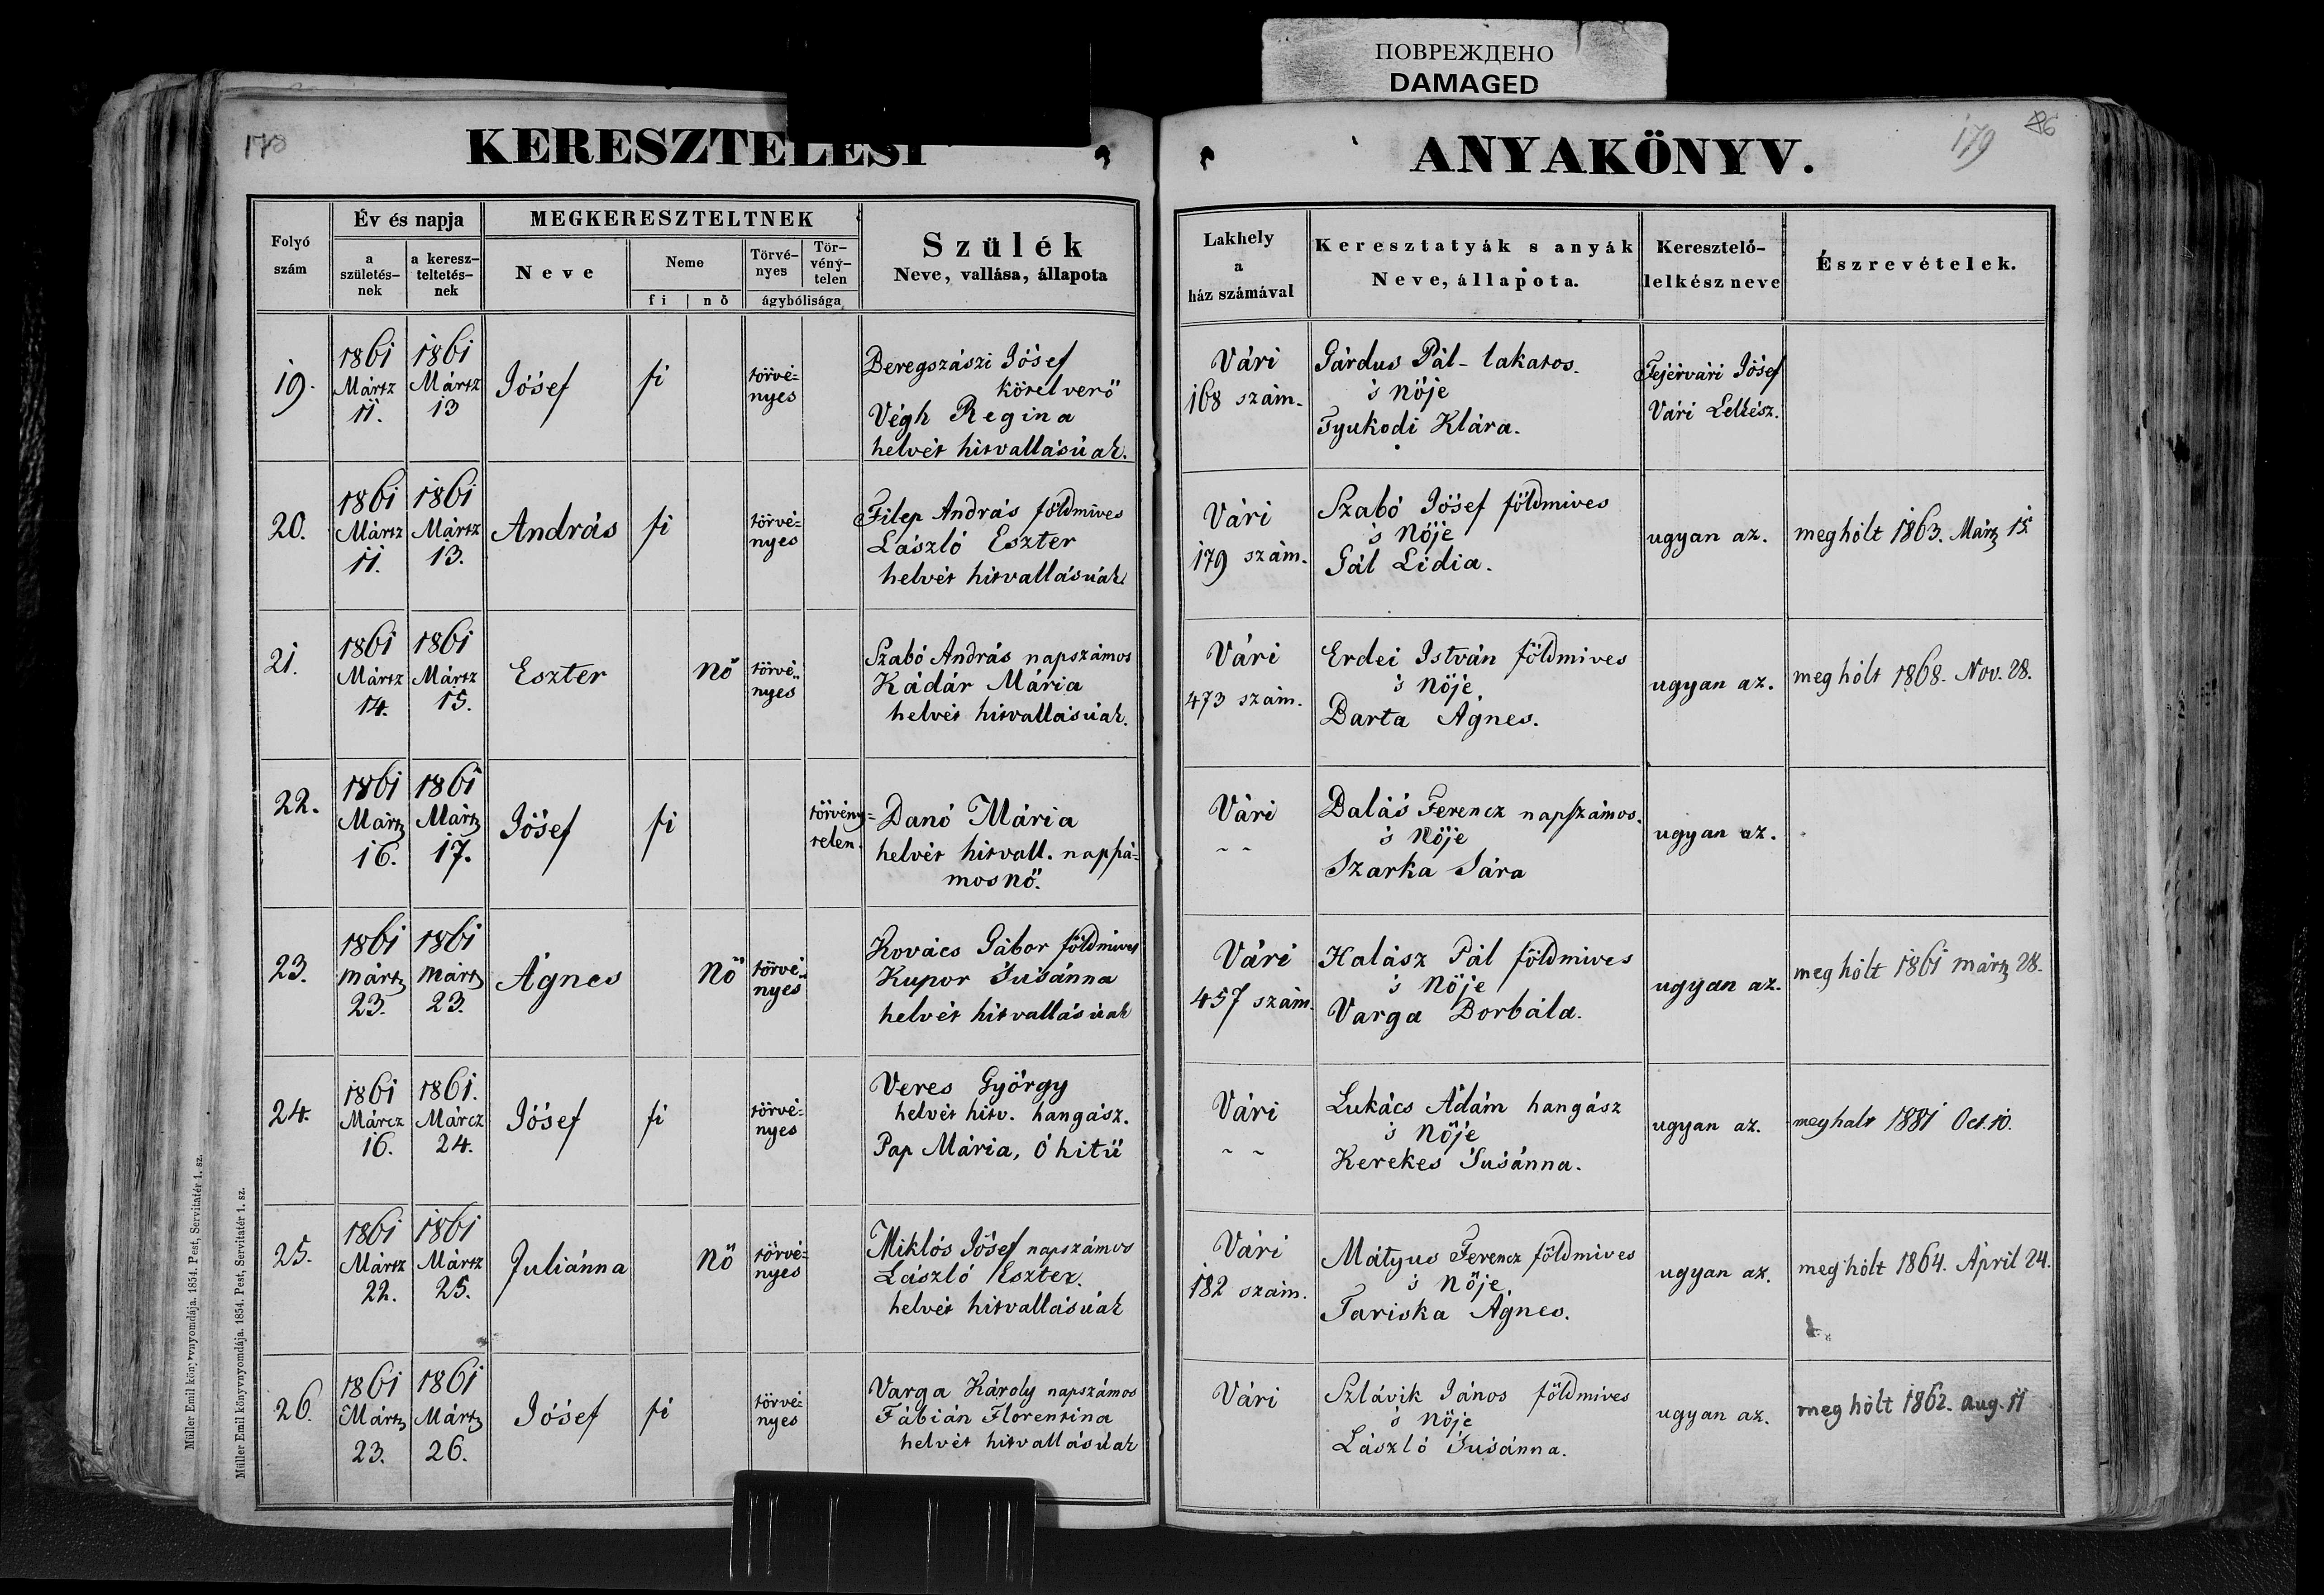 ПОВРЕЖДЕНО
DAMAGED
178
KERESZTELÉSI
ANYAKÖNYV.
179
86
Folyó szám
Év és napja
a születés-nek
a keresz-teltetés-nek
MEGKERESZTELTNEK
Neve
Neme
fi
nő
Törvé-nyes
Tör-vény-telen
ágybólisága
Szülék
Neve, vallása, állapota
Lakhely
a
ház számával
Keresztatyák s anyák
Neve, állapota.
Keresztelő-
lelkész neve
Észrevételek.
19.
1861 Mártz 11.
1861 Mártz 13
Jósef
fi
törvé=
nyes
Beregszászi Jósef
kötelverő
Végh Regina
helvét hitvallásúak.
Vári
168 szám.
Gárdus Pál - lakatos.
's Nője
Tyukodi Klára.
Fejérvári Jósef
Vári Lelkész.
20.
1861 Mártz 11.
1861 Mártz 13.
András
fi
törvé=
nyes
Filep András földmives
László Eszter
helvét hitvallásúak
Vári
179 szám.
Szabó Jósef földmives
's Nője
Gál Lidia.
ugyan az.
meghólt 1863. Märtz 15.
21.
1861 Mártz 14.
1861 Mártz 15.
Eszter
nő
törvé=
nyes
Szabó András napszámos
Kádár Mária
helvét hitvallásúak.
Vári
473 szám.
Erdei István földmives
's Nője
Barta Ágnes.
ugyan az.
meghólt 1868. Nov. 28.
22.
1861 Mártz 16.
1861 Mártz 17.
Jósef
fi
törvény=
telen.
Danó Mária
helvét hitvall. napszá=
mosnő.
Vári
~ ~
Balás Ferencz napszámos.
's Nője
Szarka Sára
ugyan az.
23.
1861 Mártz 23.
1861 Mártz 23.
Ágnes
Nő
törvé=
nyes
Kovács Gábor földmives
Kupor Susánna
helvét hitvallásúak
Vári
457 szám.
Halász Pál földmives
's Nője
Varga Borbála.
ugyan az.
meghólt 1861 märtz 28.
24.
1861 Márcz 16.
1861. Márcz 24.
Jósef
fi
törvé=
nyes
Veres György
helvét hitv. hangász.
Pap Mária, Ó hitü
Vári
~ ~
Lukács Ádám hangász
's Nője
Kerekes Susánna.
ugyan az.
meghalt 1881 Oct. 10.
25.
1861 Mártz 22.
1861 Mártz 25.
Juliánna
Nő
törvé=
nyes
Miklós Jósef napszámos
László Eszter.
helvét hitvallásúak
Vári
182 szám.
Mátyus Ferencz földmives
's Nője
Tariska Ágnes.
ugyan az.
meghólt 1864. April 24.
26.
1861 Mártz 23.
1861 Mártz 26.
Jósef
fi
törvé=
nyes
Varga Károly napszámos
Fábián Florentina
helvét hitvallásúak
Vári
Szlávik János földmives
's Nője
László Susánna.
ugyan az.
meghólt 1862. aug. 11
Müller Emil könyvnyomdája. 1854. Pest, Servitatér 1. sz.
Müller Emil könyvnyomdája. 1854. Pest, Servitatér 1. sz.